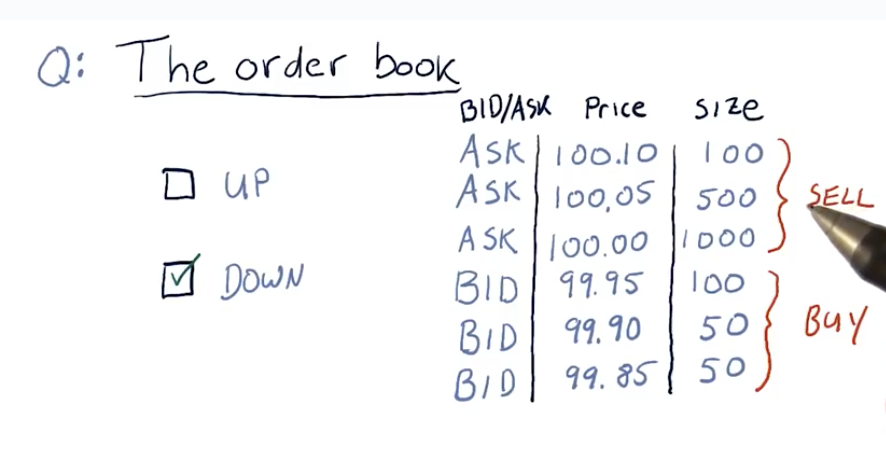 Q: The order book
BID/ASK Price SIZE
ASK 100.10 100
ASK 100.05 500 SELL
ASK 100.00 1000
BID 99.95 100
BID 99.90 50 BUY
BID 99.85 50
UP
DOWN